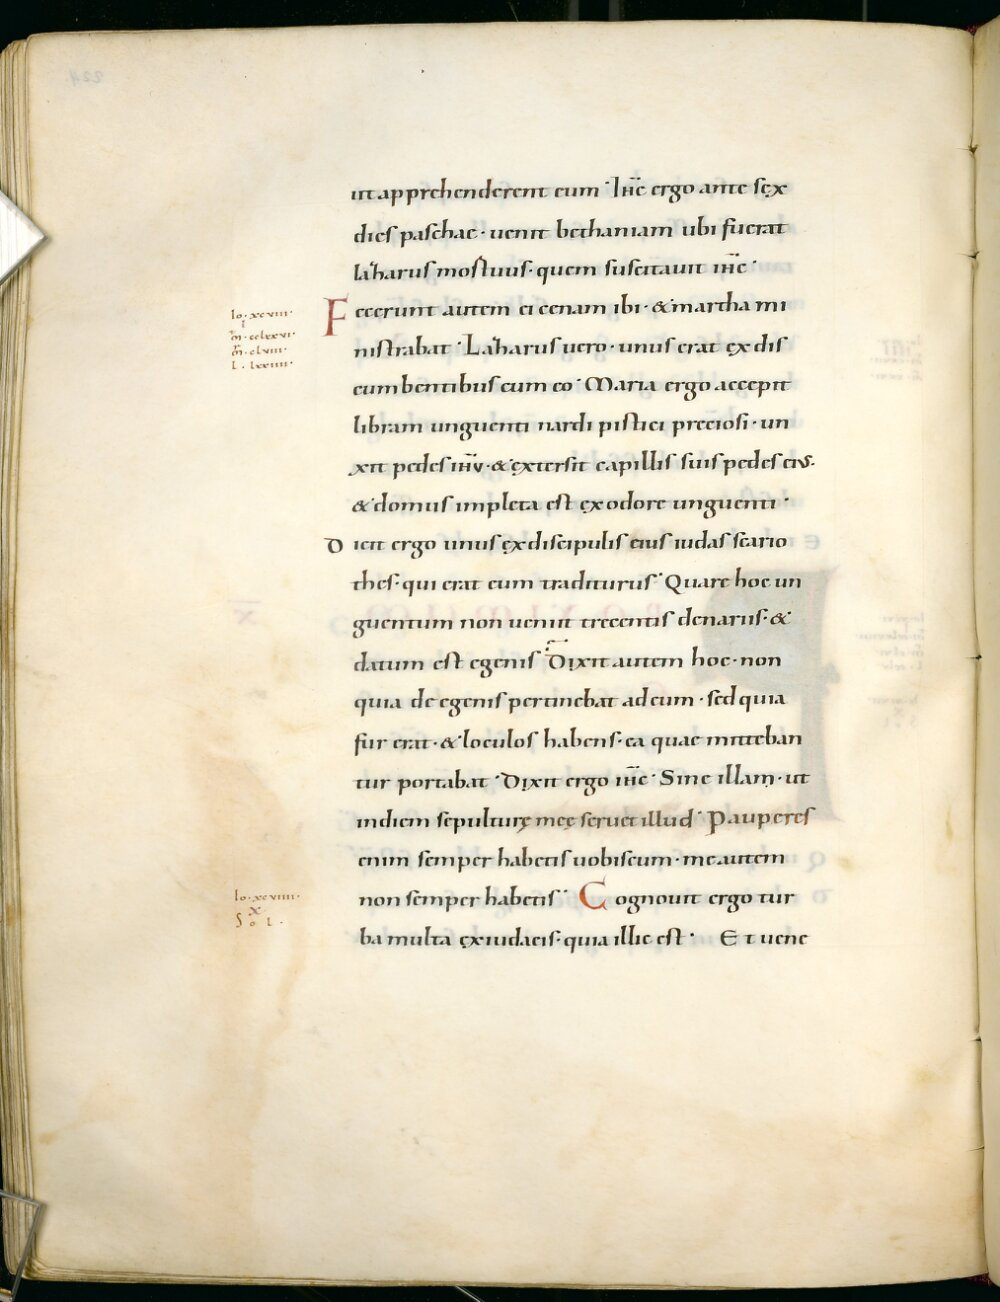 ut apprehenderent eum· Ih̅c ergo ante sęx
dies paschae· uenit bethaniam ubi fuerat
lazharus mortuus· quem suscitauit ih̅c·
Io· xcviii·
I
m̅· cclxxvi·
m̅· clviii·
L· lxxiiii·
Fecerunt autem ei cenam ibi· & martha mi
nistrabat· Lazharus uero· unus erat ęx dis
cumbentibus cum eo· Maria ergo accepit
libram unguenti nardi pistici preciosi· un
xit pedes ih̅v· & ęxtersit capillis suis pedes eius·
& domus impleta est ęx odore unguenti·
Dicit ergo unus ęx discipulis eius iudas scario
thes· qui erat eum traditurus· Quare hoc un
guentum non ueniit trecentis denariis· &
datum est egenis· Dixit autem hoc· non
quia de egenis pertinebat ad eum· sed quia
fur erat· & loculos habens· ea quae mitteban
tur portabat· Dixit ergo ih̅c· Sine illam· ut
in diem sepulturę meę seruet illud· Pauperes
enim semper habetis uobiscum· me autem
Io· xcviiii·
X
Sol·
non semper habetis· Cognouit ergo tur
ba multa ęx iudaeis· quia illic est· Et uene